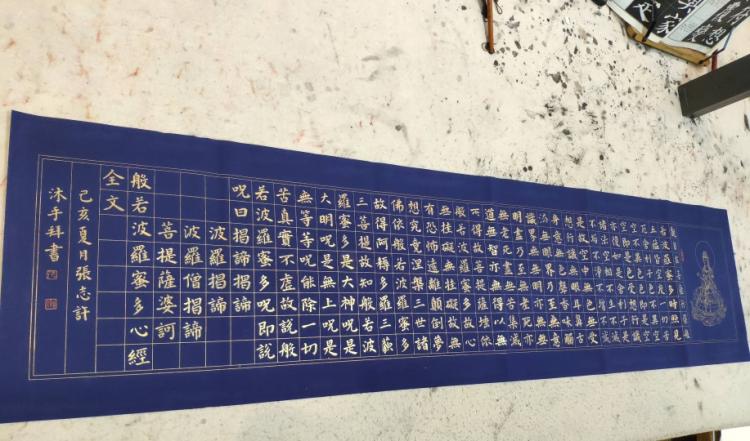 觀自在菩薩行深般
若波羅蜜多時照見
五蘊皆空度一切苦
厄舍利子色不異空
空不異色色即是空
空即是色受想行識
亦復如是舍利子是
諸法空相不生不滅
不垢不淨不增不減
是故空中無色無受
想行識無眼耳鼻舌
身意無色聲香味觸
法無眼界乃至無意
識界無無明亦無無
明盡乃至無老死亦
無老死盡無苦集滅
道無智亦無得以無
所得故菩提薩埵依
般若波羅蜜多故心
無罣礙無罣礙故無
有恐怖遠離顛倒夢
想究竟涅槃三世諸
佛依般若波羅蜜多
故得阿耨多羅三藐
三菩提故知般若波
羅蜜多是大神呪是
大明呪是無上呪是
無等等呪能除一切
苦真實不虛故說般
若波羅蜜多呪即說
呪曰揭諦揭諦
波羅揭諦
波羅僧揭諦
菩提薩婆訶
般若波羅蜜多心經
全文
己亥夏月張志訐
沐手拜書